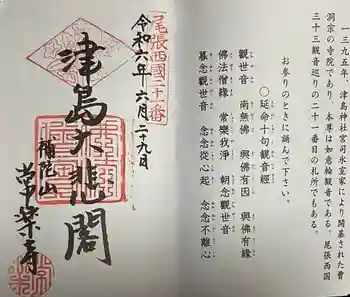 一三九五年、津島神社宮司氷室家により開基された曹
洞宗の寺院であり、本尊は如意輪観音である。尾張西国
三十三観音巡りの二十一番目の札所でもある。
お参りのときに誦んで下さい。
〇延命十句観音經
観世音 南無佛 與佛有因 與佛有緣
佛法僧緣 常樂我淨 朝念觀世音
暮念觀世音 念念從心起 念念不離心
尾張西國二十一番
令和六年 六月二十九日
津島大悲閣
補陀山
常楽寺